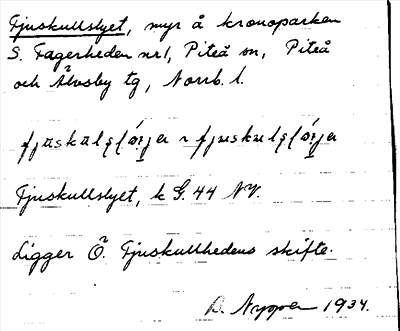 Fjuskullslyet, myr å kronoparken
S. Fagerheden nr 1, Piteå sn, Piteå
och Älvsby tg, Norrb. l.
Fjuskullslyet, k G. 44 NV.
Ligger Ö. Fjuskullhedens skifte.
1934.